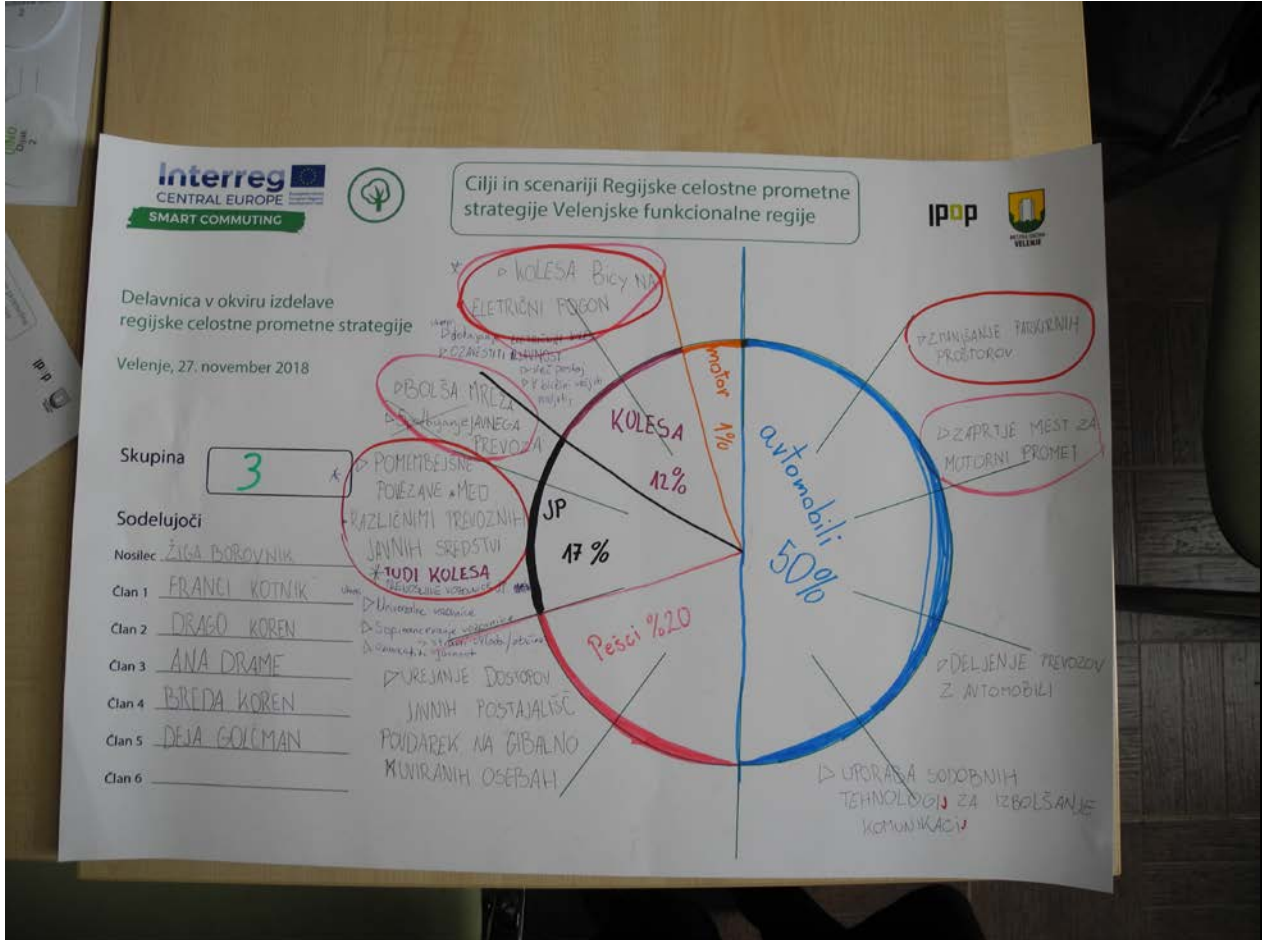 Interreg
CENTRAL EUROPE
SMART COMMUTING
Cilji in scenariji Regijske celostne prometne
strategije Velenjske funkcionalne regije
IPOP
VELENJE
Delavnica v okviru izdelave
regijske celostne prometne strategije
Velenje, 27. november 2018
Skupina
3
Sodelujoči
Nosilec ŽIGA BOROVNIK
Član 1 FRANCI KOTNIK
Član 2 DRAGO KOREN
Član 3 ANA DRAME
Član 4 BREDA KOREN
Član 5 DEJA GOLČMAN
Član 6
* KOLESA Bicy NA
ELETRIČNI POGON
OZAVESTITI JAVNOST
BOLŠA MREŽA
JAVNEGA
PREVOZA
* POMEMBEJŠNE
POVEZAVE MED
RAZLIČNIMI PREVOZNIH
JAVNIH SREDSTVI
* TUDI KOLESA
Sofinanceranje vozovnice
UREJANJE DOSTOPOV
JAVNIH POSTAJALIŠČ
POUDAREK NA GIBALNO
OVIRANIH OSEBAH
motor 1%
KOLESA
12%
JP
17 %
Pešci %20
avtomobili
50%
ZMNJŠANJE PARKIRNIH
PROSTOROV
ZAPRTJE MEST ZA
MOTORNI PROMET
DELJENJE PREVOZOV
Z AVTOMOBILI
UPORABA SODOBNIH
TEHNOLOGIJ ZA IZBOLŠANJE
KOMUNIKACIJ